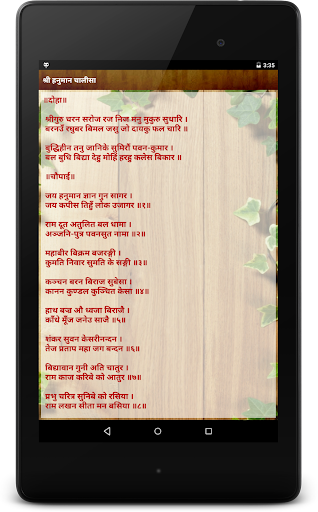 3:35
श्री हनुमान चालीसा
॥दोहा॥
श्रीगुरु चरन सरोज रज निज मनु मुकुरु सुधारि ।
बरनउँ रघुबर बिमल जसु जो दायकु फल चारि ॥
बुद्धिहीन तनु जानिके सुमिरौं पवन-कुमार ।
बल बुधि बिद्या देहु मोहिं हरहु कलेस बिकार ॥
॥चौपाई॥
जय हनुमान ज्ञान गुन सागर ।
जय कपीस तिहुँ लोक उजागर ॥१॥
राम दूत अतुलित बल धामा ।
अञ्जनि-पुत्र पवनसुत नामा ॥२॥
महाबीर बिक्रम बजरङ्गी ।
कुमति निवार सुमति के सङ्गी ॥३॥
कञ्चन बरन बिराज सुबेसा ।
कानन कुण्डल कुञ्चित केसा ॥४॥
हाथ बज्र औ ध्वजा बिराजै ।
काँधे मूँज जनेउ साजै ॥५॥
शंकर सुवन केसरीनन्दन ।
तेज प्रताप महा जग बन्दन ॥६॥
बिद्यावान गुनी अति चातुर ।
राम काज करिबे को आतुर ॥७॥
प्रभु चरित्र सुनिबे को रसिया ।
राम लखन सीता मन बसिया ॥८॥